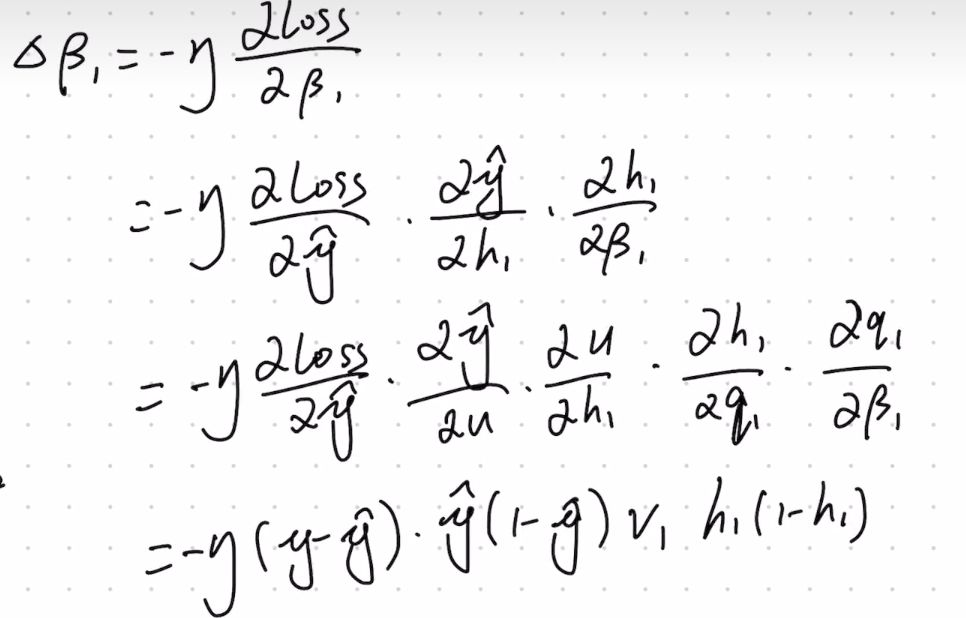 Δβ₁ = -η ∂Loss/∂β₁
= -η ∂Loss/∂ŷ · ∂ŷ/∂h₁ · ∂h₁/∂β₁
= -η ∂Loss/∂ŷ · ∂ŷ/∂u · ∂u/∂h₁ · ∂h₁/∂q₁ · ∂q₁/∂β₁
= -η (y-ŷ) · ŷ(1-ŷ) v₁ h₁(1-h₁)